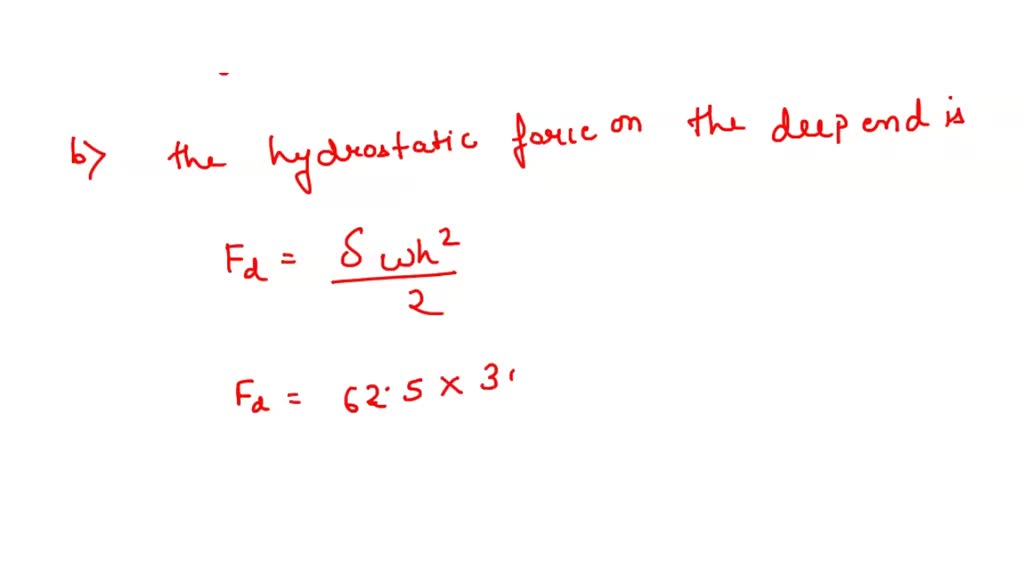 b) the hydrostatic force on the deep end is
Fd = δwh²/2
Fd = 62.5 × 3